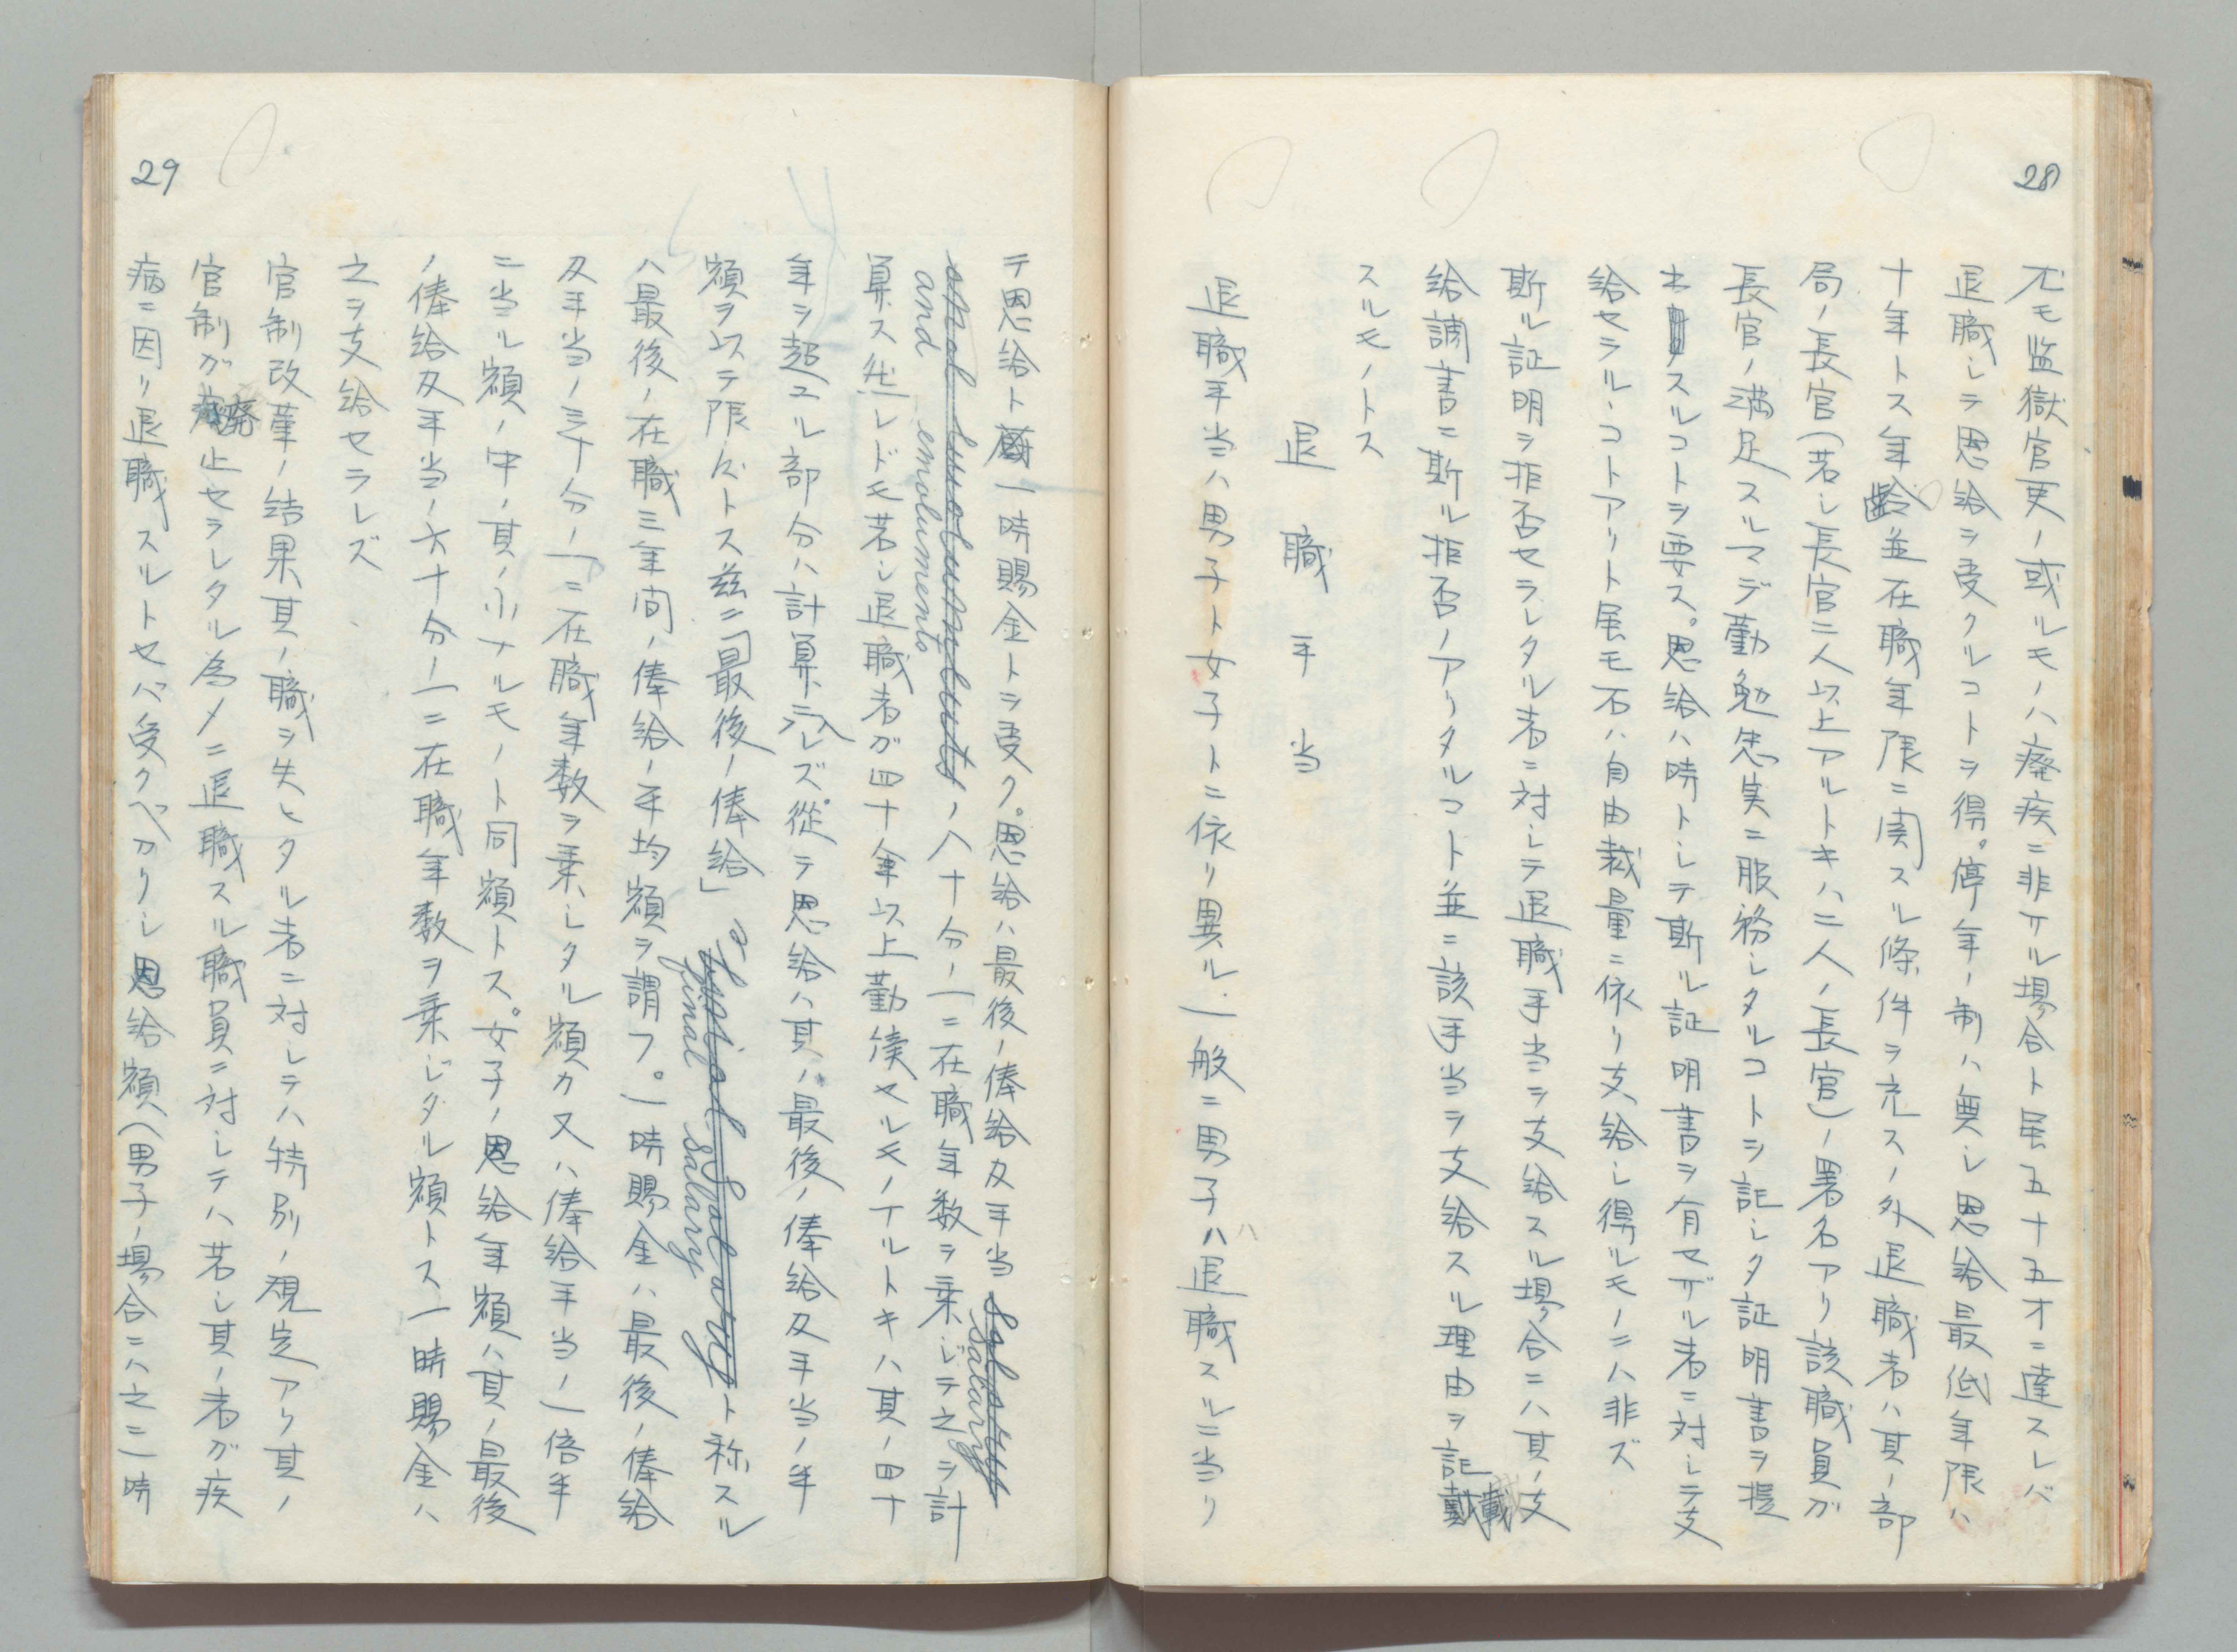 28
尤モ監獄官吏ノ或ルモノハ廃疾ニ非サル場合ト雖五十五才ニ達スレバ
退職シテ恩給ヲ受クルコトヲ得。停年ノ制ハ無シ恩給最低年限ハ
十年トス年齢並在職年限ニ関スル條件ヲ充スノ外退職者ハ其ノ部
局ノ長官(若シ長官二人以上アルトキハ二人ノ長官)ノ署名アリ該職員ガ
長官ノ満足スルマデ勤勉忠実ニ服務シタルコトヲ記シタ証明書ヲ提
出スルコトヲ要ス。恩給ハ時トシテ斯ル証明書ヲ有セザル者ニ対シテ支
給セラルヽコトアリト雖モ右ハ自由裁量ニ依リ支給シ得ルモノニハ非ズ
斯ル証明ヲ拒否セラレタル者ニ対シテ退職手当ヲ支給スル場合ニハ其ノ支
給調書ニ斯ル拒否ノアリタルコト並ニ該手当ヲ支給スル理由ヲ記載
スルモノトス
退職手当
退職手当ハ男子ト女子トニ依リ異ル.一般ニ男子ハ退職スルニ当リ
29
テ恩給ト一時賜金トヲ受ク。恩給ハ最後ノ俸給及手当 Salary
and emoluments ノ八十分ノ一ニ在職年数ヲ乗ジテ之ヲ計
算ス然レドモ若シ退職者ガ四十年以上勤続セルモノナルトキハ其ノ四十
年ヲ超ユル部分ハ計算ニ入レズ。従テ恩給ハ其ノ最後ノ俸給及手当ノ半
額ヲ以テ限度トス茲ニ「最後ノ俸給」 final salary ト称スル
ハ最後ノ在職三年間ノ俸給ノ平均額ヲ謂フ。一時賜金ハ最後ノ俸給
及手当ノ三十分ノ一ニ在職年数ヲ乗ジタル額カ又ハ俸給手当ノ一倍半
ニ当ル額ノ中ノ其ノ小ナルモノト同額トス。女子ノ恩給年額ハ其ノ最後
ノ俸給及手当ノ六十分ノ一ニ在職年数ヲ乗ジタル額トス一時賜金ハ
之ヲ支給セラレズ
官制改革ノ結果其ノ職ヲ失ヒタル者ニ対シテハ特別ノ規定アリ其ノ
官制ガ廃止セラレタル為メニ退職スル職員ニ対シテハ若シ其ノ者ガ疾
病ニ因リ退職スルトセバ受クベカリシ恩給額(男子ノ場合ニハ之ニ一時